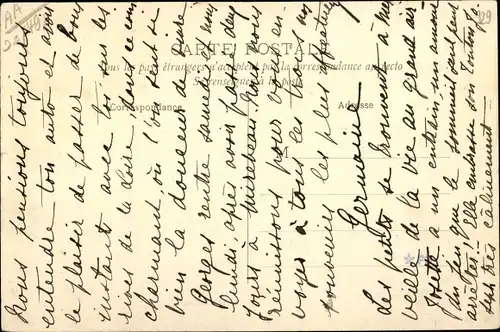 CARTE POSTALE
Tous les pays étrangers n'acceptent pas la correspondance au recto
Se renseigner à la poste
Correspondance
Adresse
Nous pensions toujours
entendre ton auto et avoir
le plaisir de passer de bons
instants avec toi sur les
rives de la Loire, dans ce coin
charmant, où l'on sent si
bien la douceur de vivre.
Georges rentre samedi, nous
lundi, après avoir passé deux
jours à Mirebeau. Nous nous
réunissons pour vous en-
voyer à tous les Lyonnais nos
souvenirs les plus affectueux
Germaine
Les petits se trouvent à mer-
veille de la vie au grand air.
Yvette a un entrain, un animo
plus fou que le sommeil seul peut
arrêter; elle embrasse son Tonton
et très câlinement